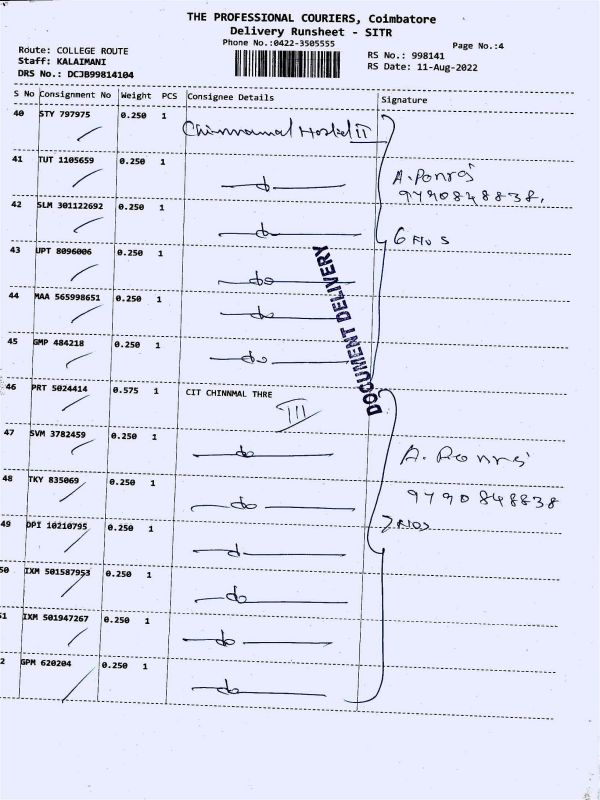 THE PROFESSIONAL COURIERS, Coimbatore
Delivery Runsheet - SITR
Phone No.:0422-3505555
Page No.:4
Route: COLLEGE ROUTE
Staff: KALAIMANI
DRS No.: DCJB99814104
RS No.: 998141
RS Date: 11-Aug-2022
S No Consignment No Weight PCS Consignee Details Signature
40 STY 797975 0.250 1 Chinnamal Hostel II
41 TUT 1105659 0.250 1 do
A. Ponraj
9790848838.
42 SLM 301122692 0.250 1 do
6 Nos
43 UPT 8096006 0.250 1 do
44 MAA 565998651 0.250 1 do
45 GMP 484218 0.250 1 do
DOCUMENT DELIVERY
46 PRT 5024414 0.575 1 CIT CHINNMAL THRE
III
47 SVM 3782459 0.250 1 do
A. Ponraj
48 TKY 835069 0.250 1 do
9790848838
7 Nos
49 DPI 10210795 0.250 1 do
50 IXM 501587953 0.250 1 do
51 IXM 501947267 0.250 1 do
2 GPM 620204 0.250 1 do